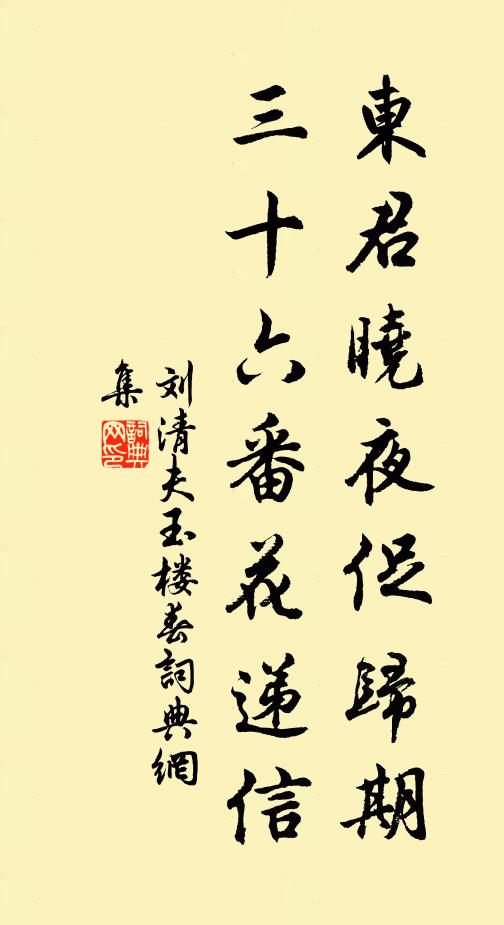 東君曉夜促歸期
三十六番花递信
刘清夫玉楼春詞典網
集
詞典
网印